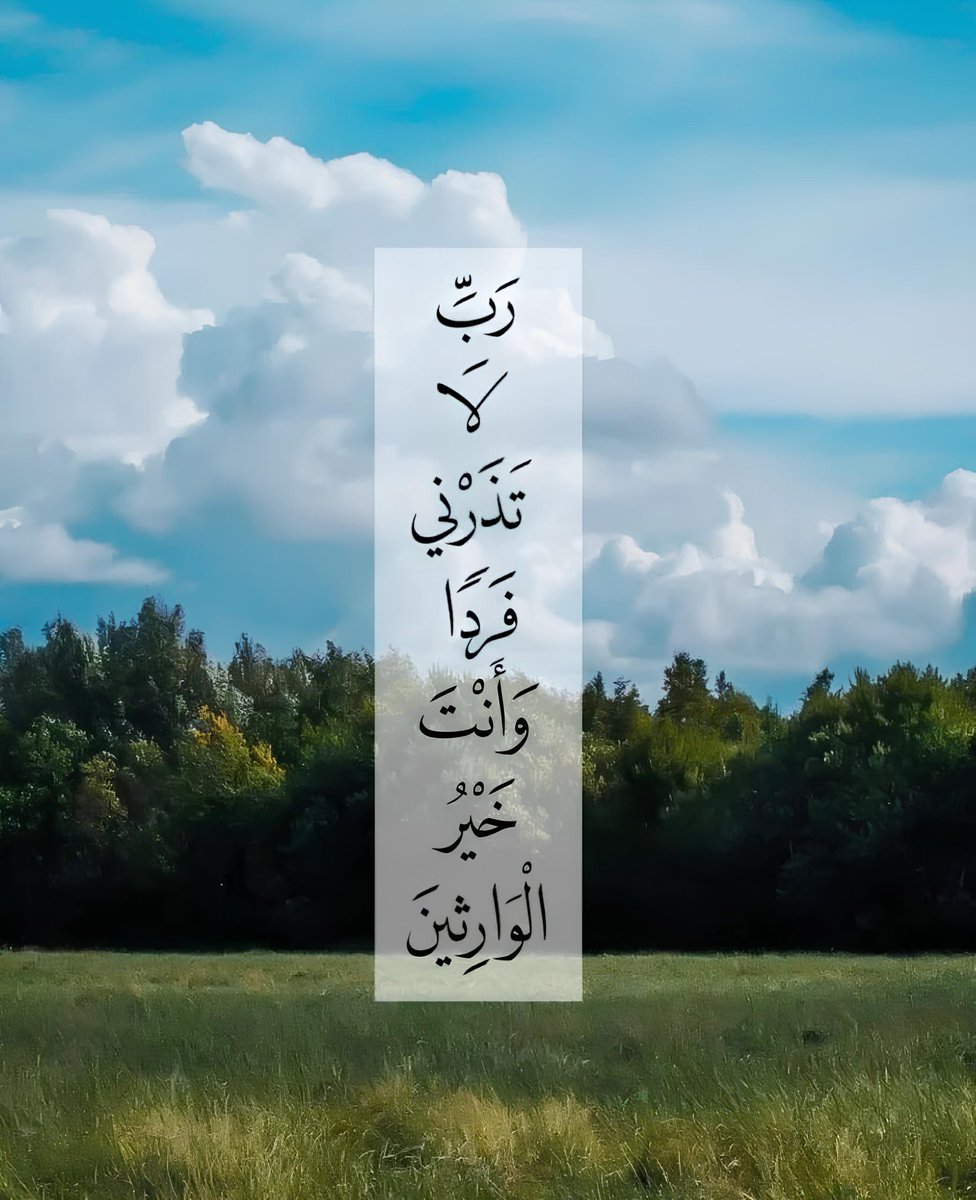 رَبِّ
لَا
تَذَرْنِي
فَرْدًا
وَأَنْتَ
خَيْرُ
الْوَارِثِينَ